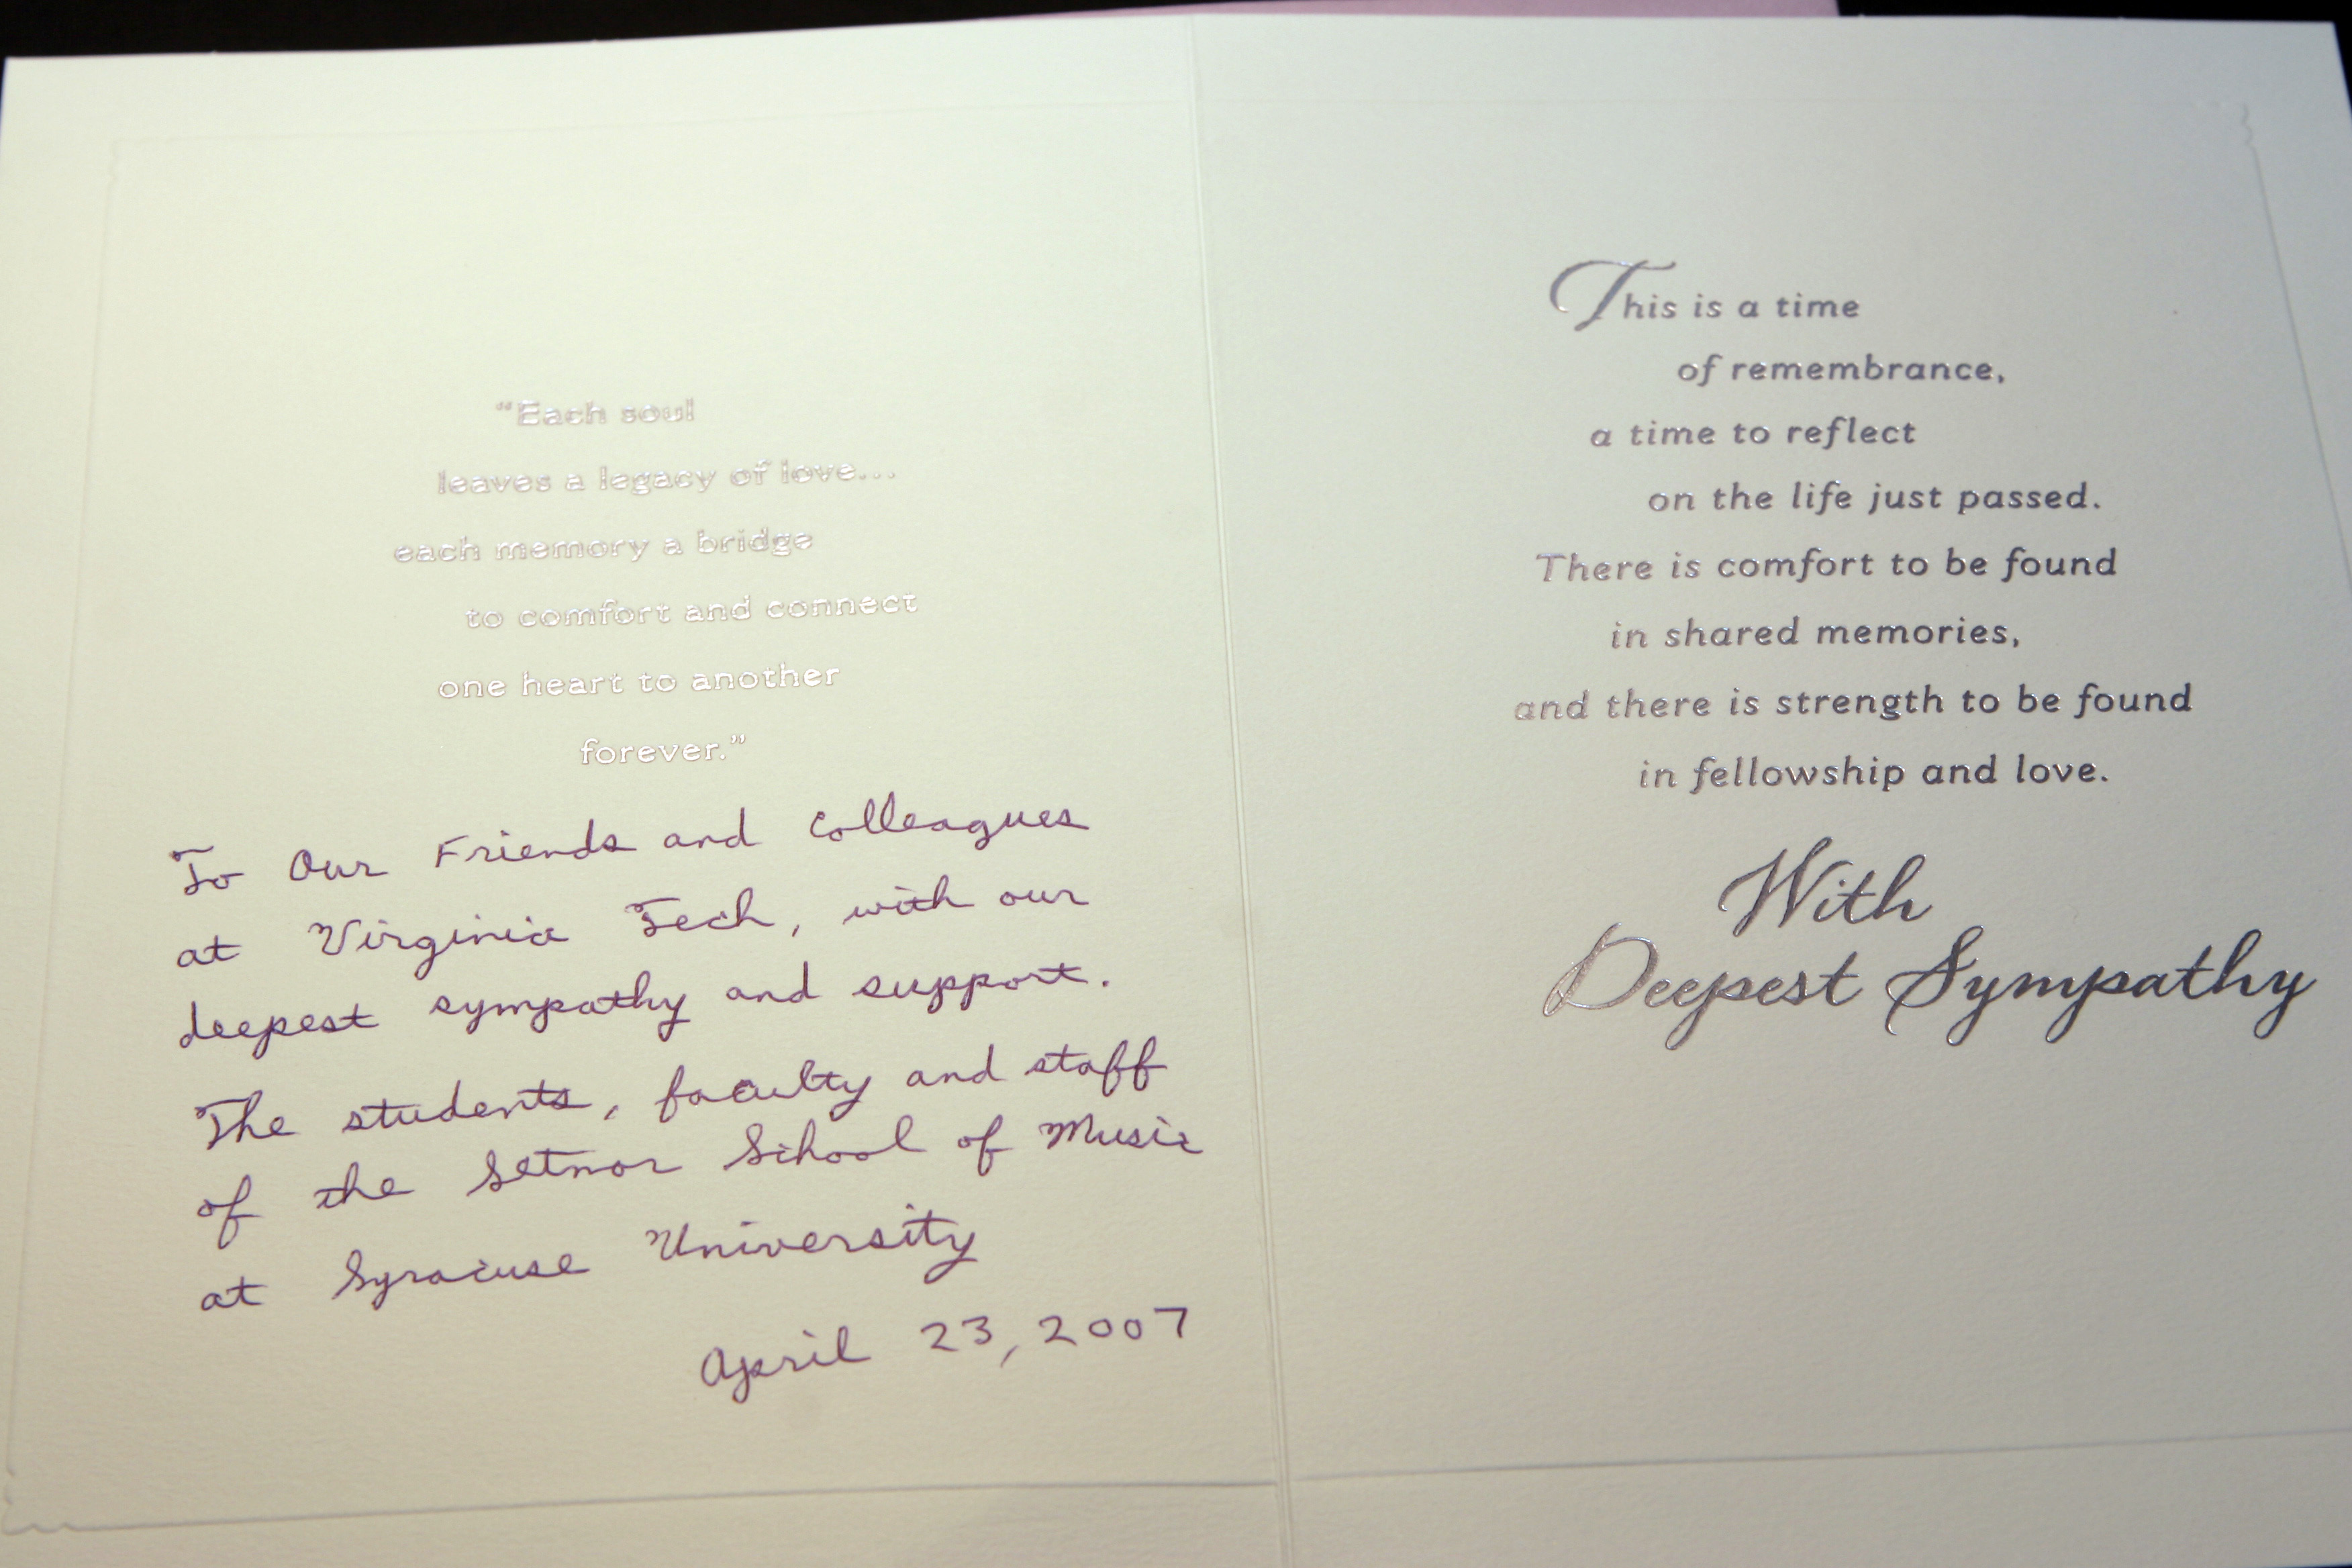 “Each soul
leaves a legacy of love...
each memory a bridge
to comfort and connect
one heart to another
forever.”
To Our Friends and Colleagues
at Virginia Tech, with our
deepest sympathy and support.
The students, faculty and staff
of the Setnor School of Music
at Syracuse University
April 23, 2007
This is a time
of remembrance,
a time to reflect
on the life just passed.
There is comfort to be found
in shared memories,
and there is strength to be found
in fellowship and love.
With
Deepest Sympathy